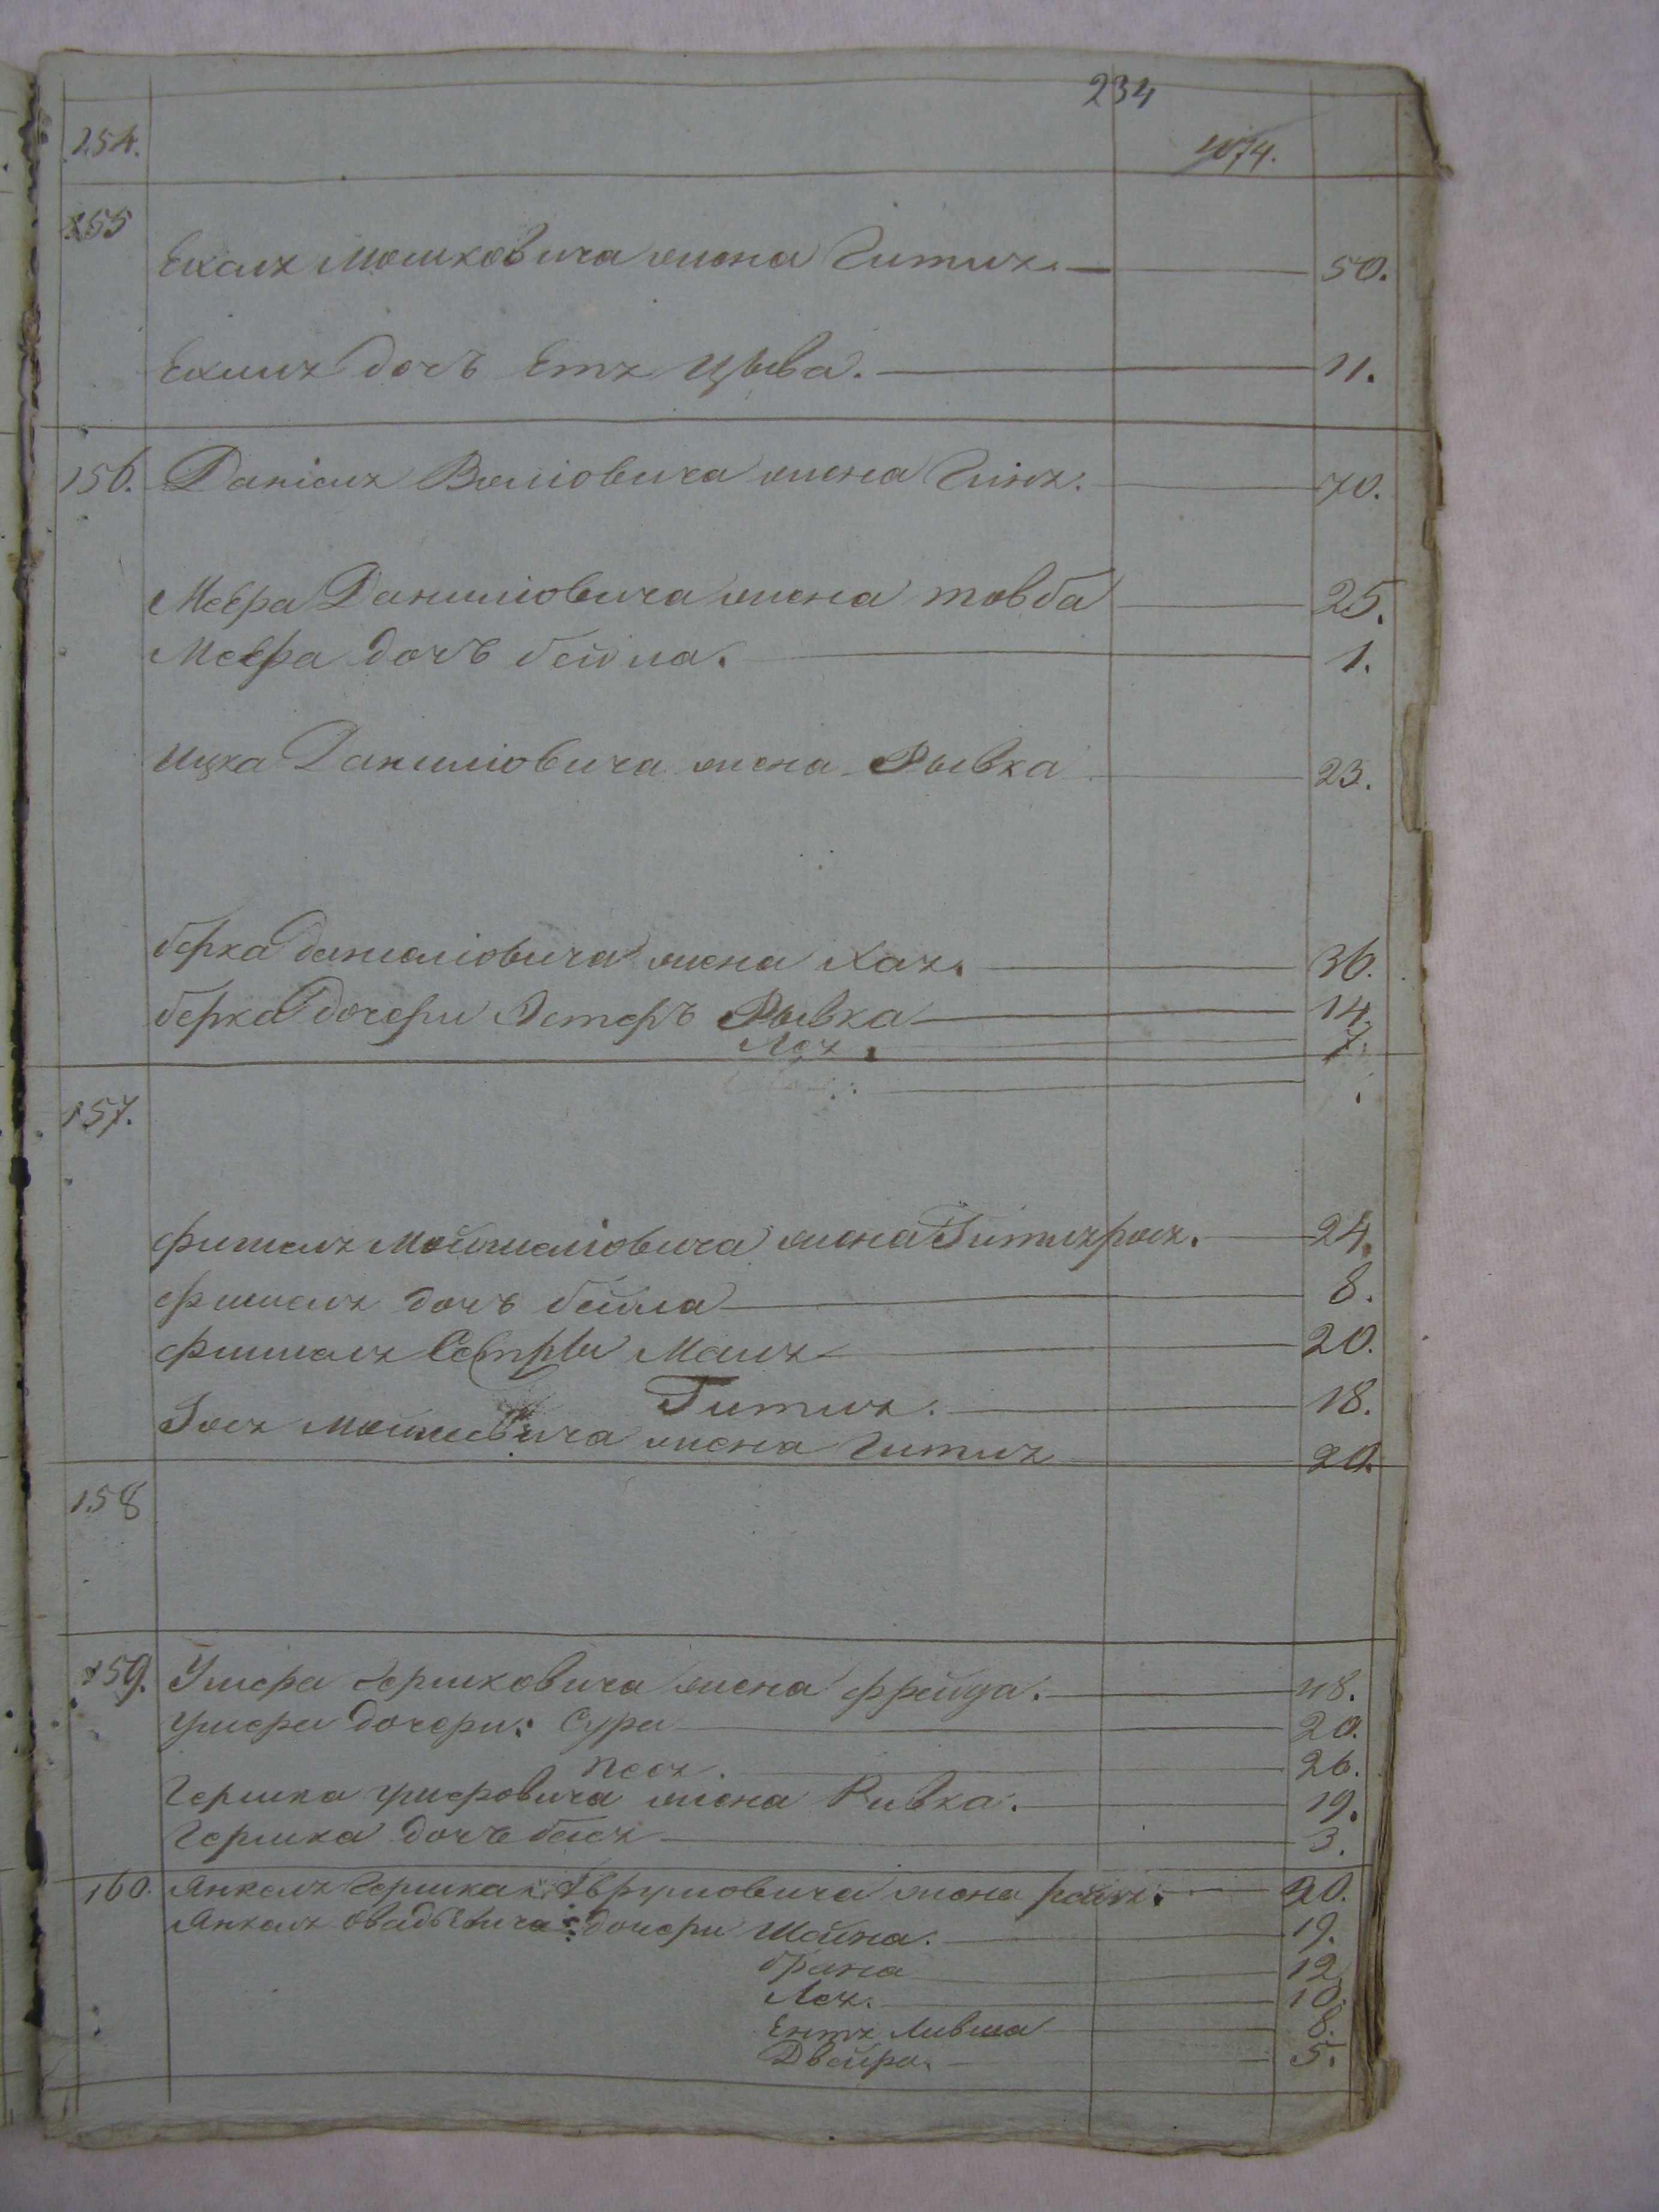 234
254.
1074.
155
Ехаля Мошковича жена Гитля. 50.
Ехиля дочь Етя Цыва. 11.
156. Даніеля Веліовича жена Гиня. 70.
Меера Даниліовича жена товба 25.
Меера дочь бейла. 1.
Ицка Даниліовича жена Рывка 23.
берка даниліовича жена Хая. 36.
берка дочери Эстеръ Рывка 14.
Лея. 7.
157.
фишеля Мойшеліовича жена Гитля роля. 24.
фишеля дочь бейла 8.
фишеля Сестры Маля 20.
Гитля. 18.
Іося Мошковича жена Гитля 20.
158
159. Ушера Гершковича жена фрейда. 48.
Ушера дочери: Сура 20.
Песя. 26.
Гершка ушеровича жена Ривка. 19.
Гершка дочь бася 3.
160. Янкеля Гершка Аврумовича жена райля. 20.
Янкеля дочери Шейна. 19.
брана 12
Лея. 10.
Ентя Ливша 8.
Двейра. 5.